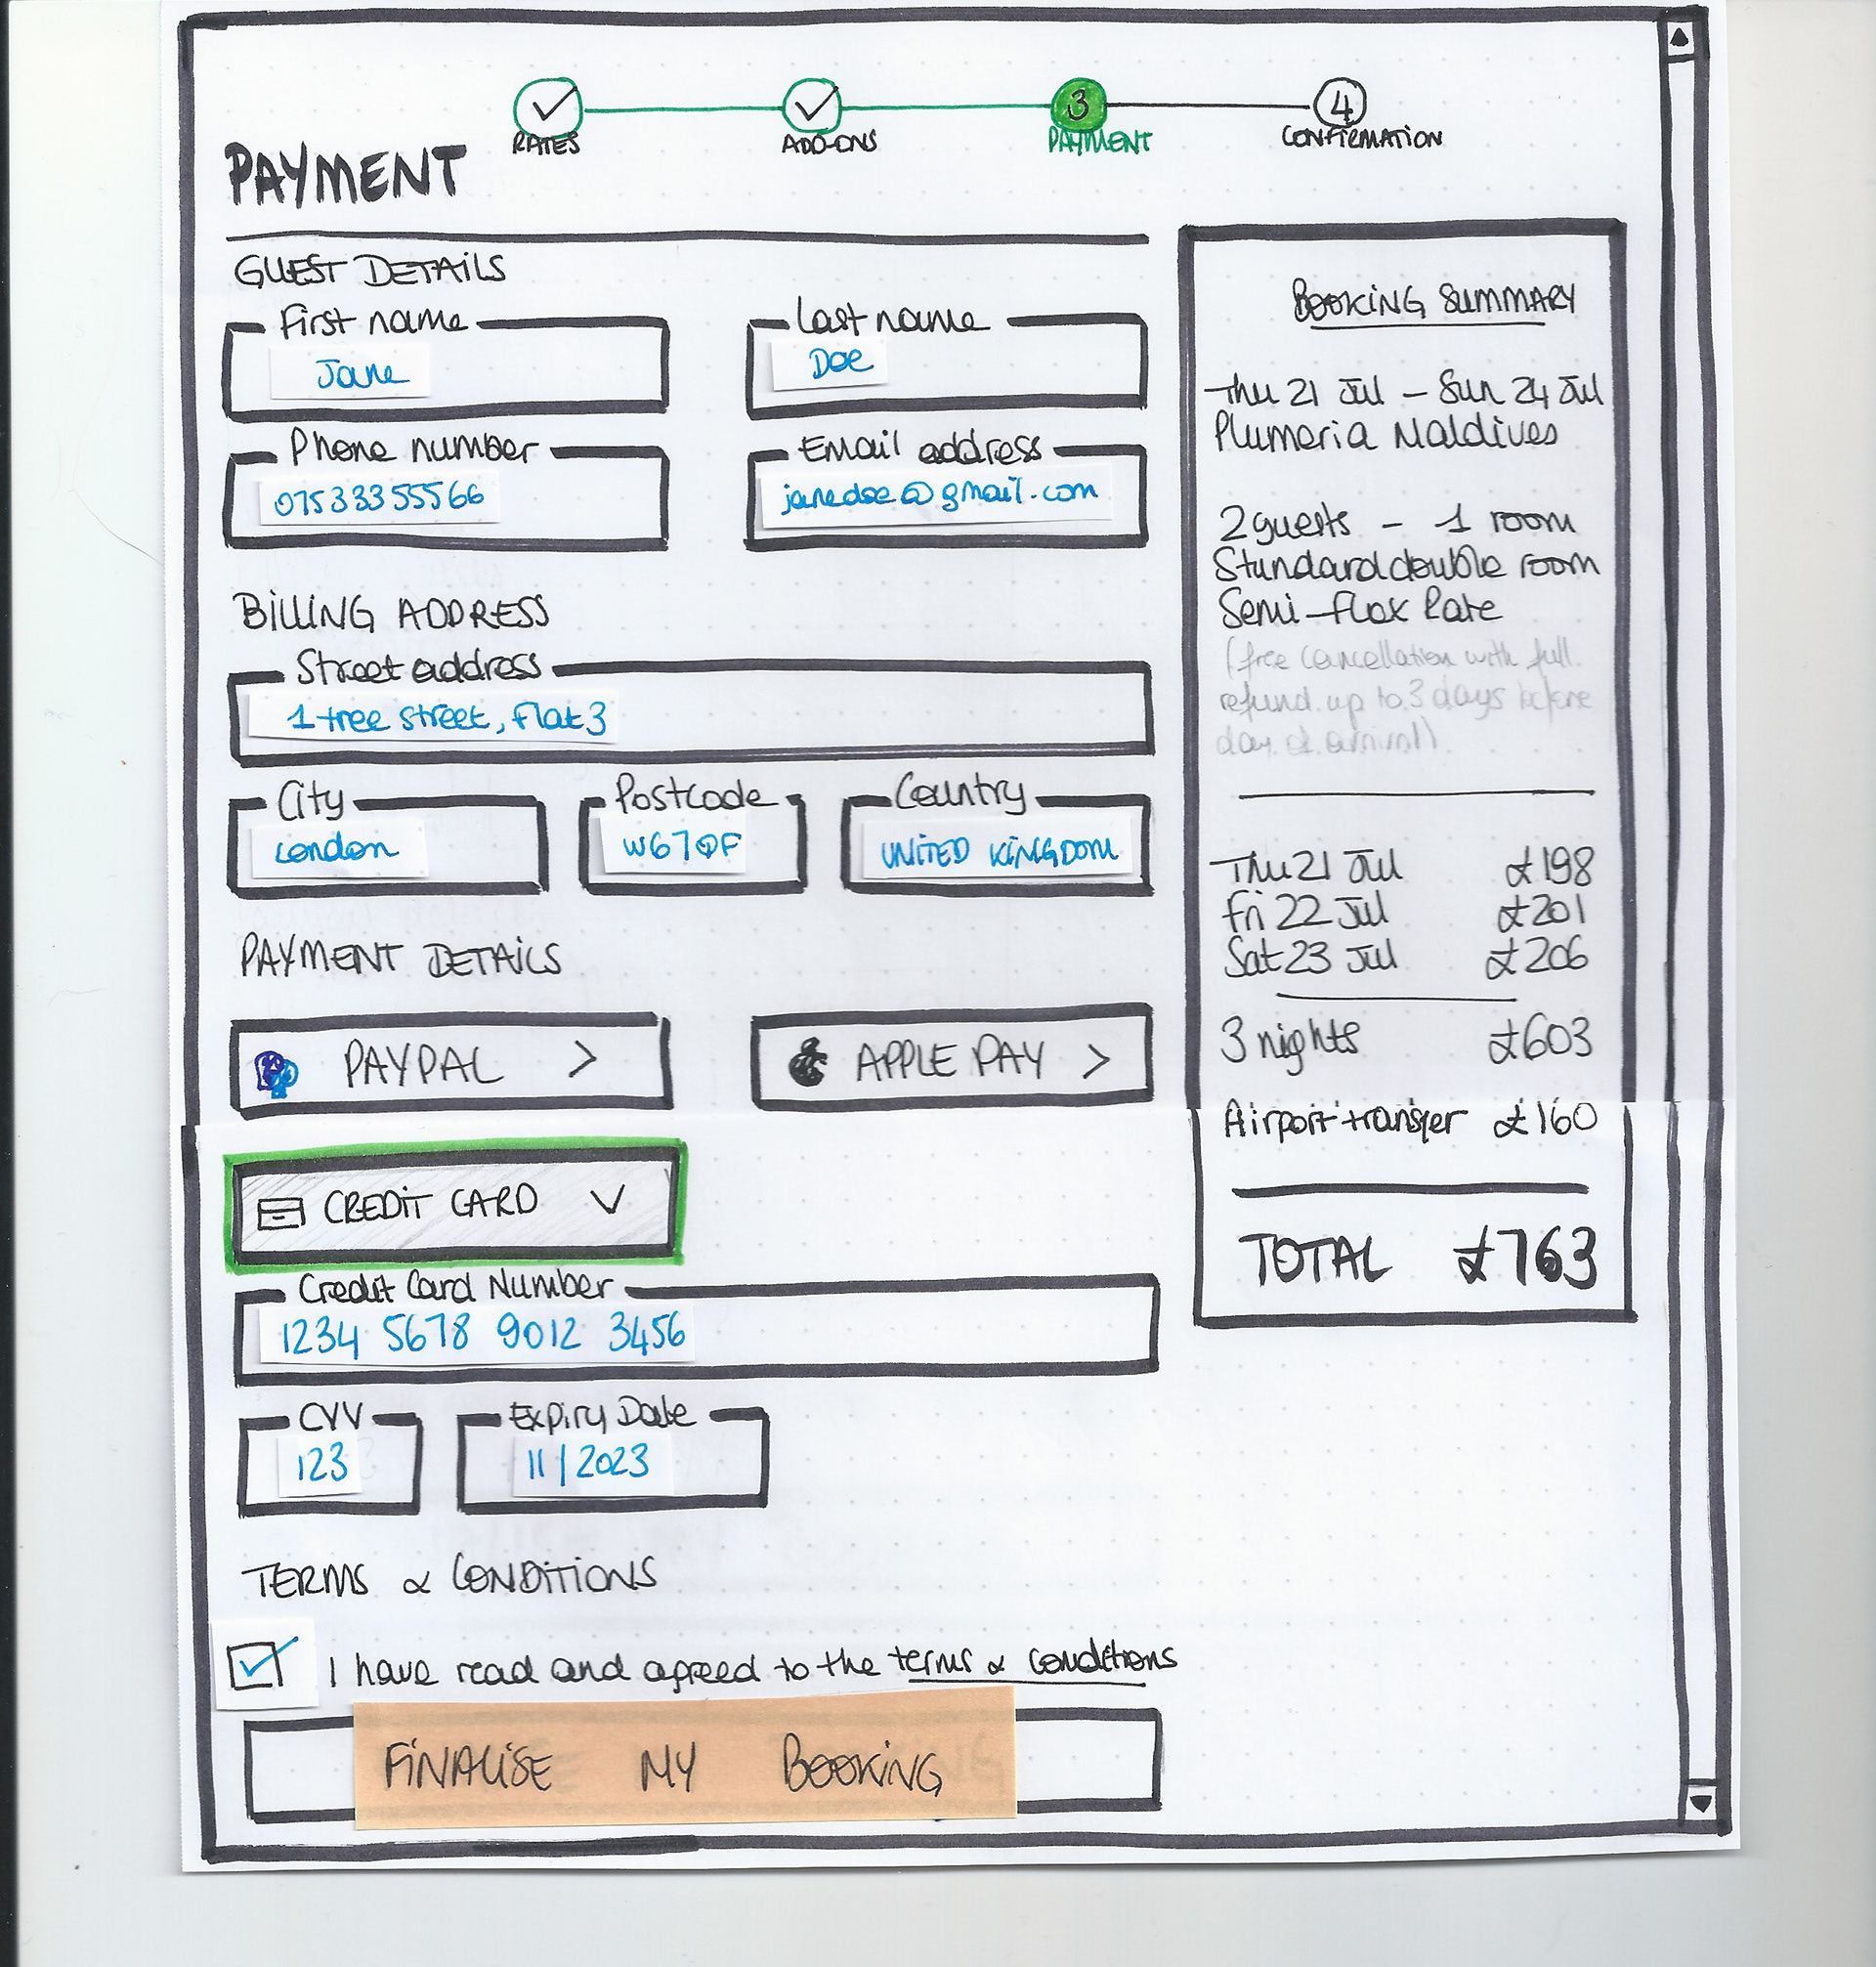 RATES
ADD-ONS
3
PAYMENT
4
CONFIRMATION
PAYMENT
GUEST DETAILS
First name
Jane
Last name
Doe
Phone number
07533355566
Email address
janedoe@gmail.com
BILLING ADDRESS
Street address
1 tree street, flat 3
City
London
Postcode
W67QF
Country
UNITED KINGDOM
PAYMENT DETAILS
PAYPAL >
APPLE PAY >
CREDIT CARD
Credit Card Number
1234 5678 9012 3456
CVV
123
Expiry Date
11/2023
TERMS & CONDITIONS
I have read and agreed to the terms & conditions
FINALISE MY BOOKING
BOOKING SUMMARY
Thu 21 Jul - Sun 24 Jul
Plumeria Maldives
2 guests - 1 room
Standard double room
Semi-flex Rate
(free cancellation with full
refund up to 3 days before
day of arrival)
Thu 21 Jul £198
Fri 22 Jul £201
Sat 23 Jul £206
3 nights £603
Airport transfer £160
TOTAL £763